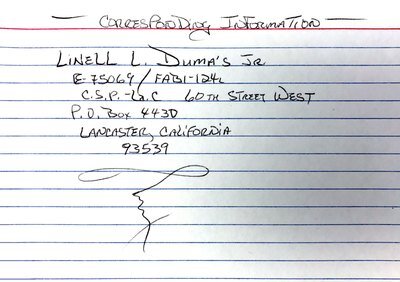 CORRESPONDING INFORMATION
LINELL L. DUMA'S JR.
E-75069/FAB1-124L
C.S.P.-L.A.C 60TH STREET WEST
P.O. BOX 4430
LANCASTER, CALIFORNIA
93539